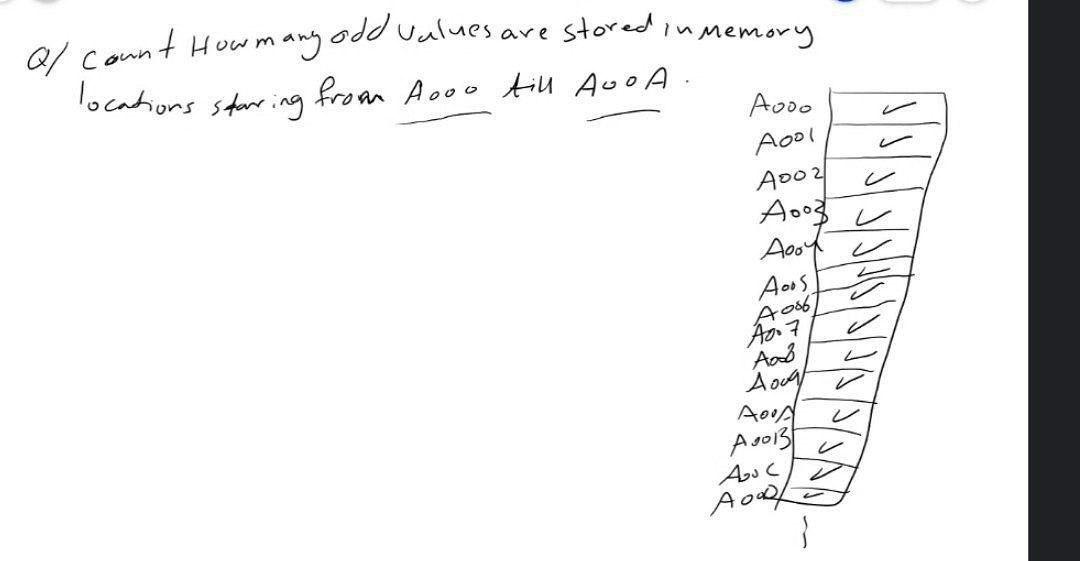 Q/ Count How many odd Values are stored in Memory
locations staring from A000 till A00A.
A000
A001
A002
A003
A004
A005
A006
A007
A008
A009
A00A
A00B
A00C
A00D